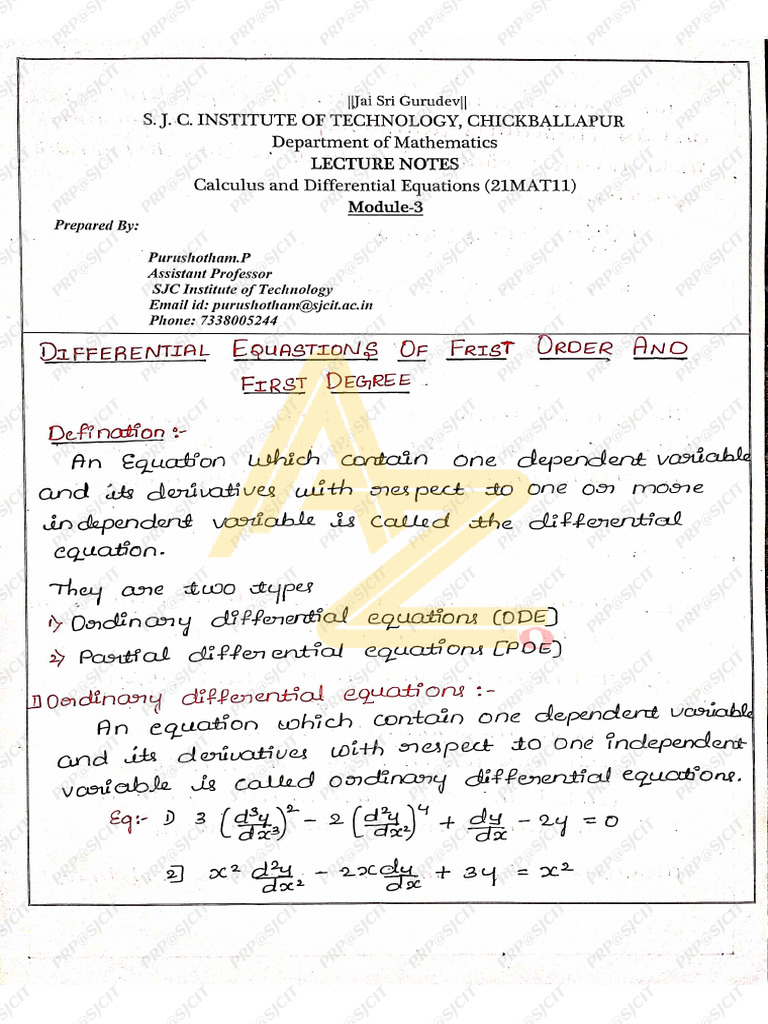 ||Jai Sri Gurudev||
S. J. C. INSTITUTE OF TECHNOLOGY, CHICKBALLAPUR
Department of Mathematics
LECTURE NOTES
Calculus and Differential Equations (21MAT11)
Module-3
Prepared By:
Purushotham.P
Assistant Professor
SJC Institute of Technology
Email id: purushotham@sjcit.ac.in
Phone: 7338005244
DIFFERENTIAL EQUASTIONS OF FRIST ORDER AND
FIRST DEGREE.
Defination:-
An Equation which contain one dependent variable
and its derivatives with respect to one or more
independent variable is called the differential
equation.
They are two types
1) Ordinary differential equations (ODE]
2) Partial differential equations [PDE]
1) Ordinary differential equations:-
An equation which contain one dependent variable
and its derivatives with respect to one independent
variable is called ordinary differential equations.
Eg:- 1) 3 (d³y/dx³)² - 2 (d²y/dx²)⁴ + dy/dx - 2y = 0
2] x² d²y/dx² - 2x dy/dx + 3y = x²
AZ
PRP@SJCIT